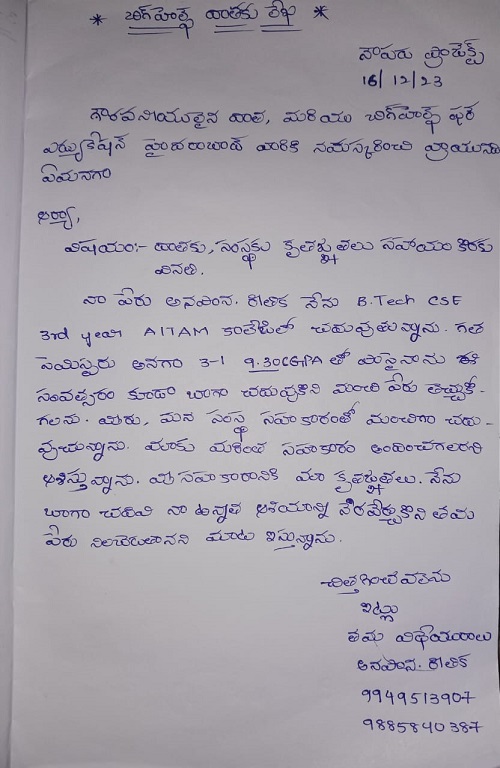 * బిగ్‌హెల్ప్ దాతకు లేఖ *
సాపురు ప్రాజెక్ట్
16/12/23
గౌరవనీయులైన దాత, మరియు బిగ్‌హెల్ప్ ఫుర
ఎడ్యుకేషన్ హైదరాబాద్ వారికి నమస్కరించి వ్రాయునది
ఏమనగా
ఆర్యా,
విషయం:- దాతకు, సంస్థకు కృతజ్ఞతలు సహాయం కొరకు
వినతి.
నా పేరు అనపాన. రాధిక నేను B.Tech CSE
3rd year AITAM కాలేజీలో చదువుతున్నాను. గత
సెమిస్టరు అనగా 3-1 9.30CGPA తో పాసైనాను ఈ
సంవత్సరం కూడా బాగా చదువుకొని మంచి పేరు తెచ్చుకో-
గలను. మీరు, మన సంస్థ సహకారంతో మంచిగా చదు-
వుచున్నాను. మాకు మరింత సహకారం అందించగలరని
ఆశిస్తున్నాను. మీ సహకారానికి మా కృతజ్ఞతలు. నేను
బాగా చదివి నా ఉన్నత ఆశయాన్ని నేరవేర్చుకొని తమ
పేరు నిలబెడతానని మాట ఇస్తున్నాను.
చిత్తగించవలెను
ఇట్లు
తమ విధేయురాలు
అనపాన. రాధిక
9949513907
9885840387